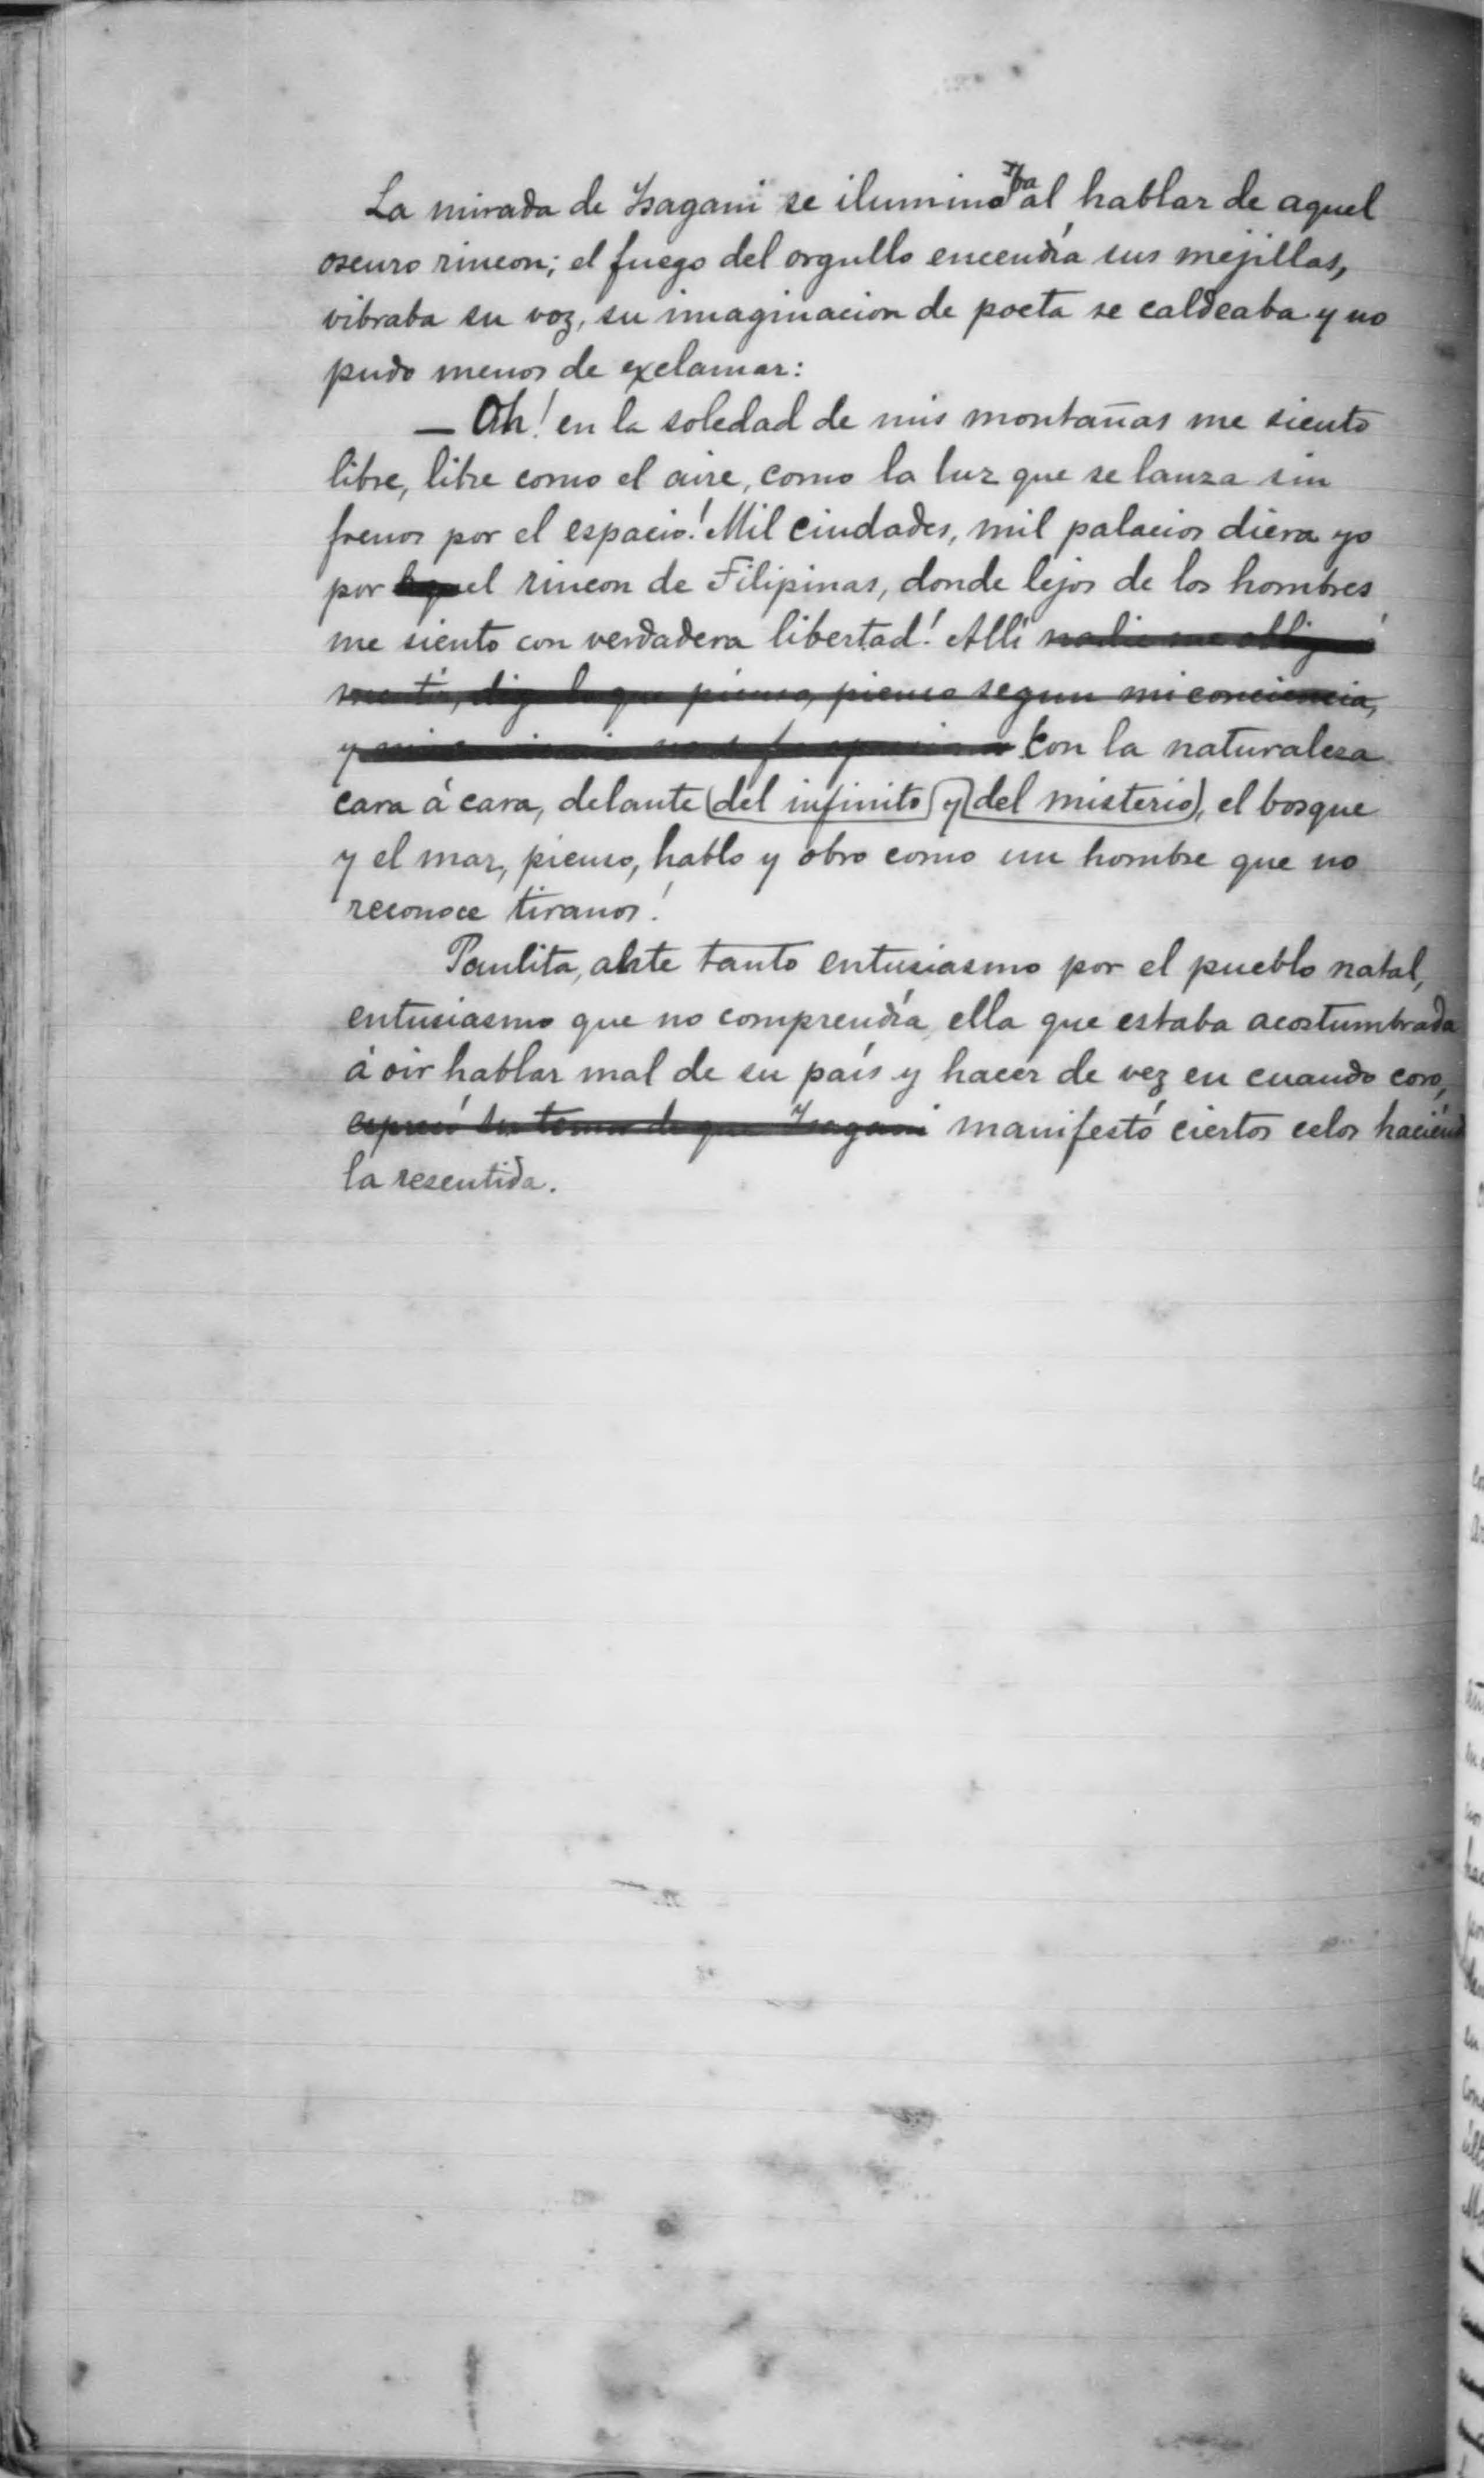 La mirada de Isagani se iluminaba al hablar de aquel
oscuro rincon; el fuego del orgullo encendía sus mejillas,
vibraba su voz, su imaginacion de poeta se caldeaba y no
pudo menos de exclamar:
— Oh! en la soledad de mis montañas me siento
libre, libre como el aire, como la luz que se lanza sin
frenos por el espacio! Mil ciudades, mil palacios diera yo
por el rincon de Filipinas, donde lejos de los hombres
me siento con verdadera libertad! Allí nadie me obliga á
digo lo que pienso, pienso segun mi conciencia,
y con la naturaleza
cara á cara, delante (del infinito) y (del misterio), el bosque
y el mar, pienso, hablo y obro como un hombre que no
reconoce tiranos!
Paulita, ante tanto entusiasmo por el pueblo natal,
entusiasmo que no comprendía, ella que estaba acostumbrada
á oir hablar mal de su país y hacer de vez en cuando coro,
de que Isagani manifestó ciertos celos haciend
la resentida.